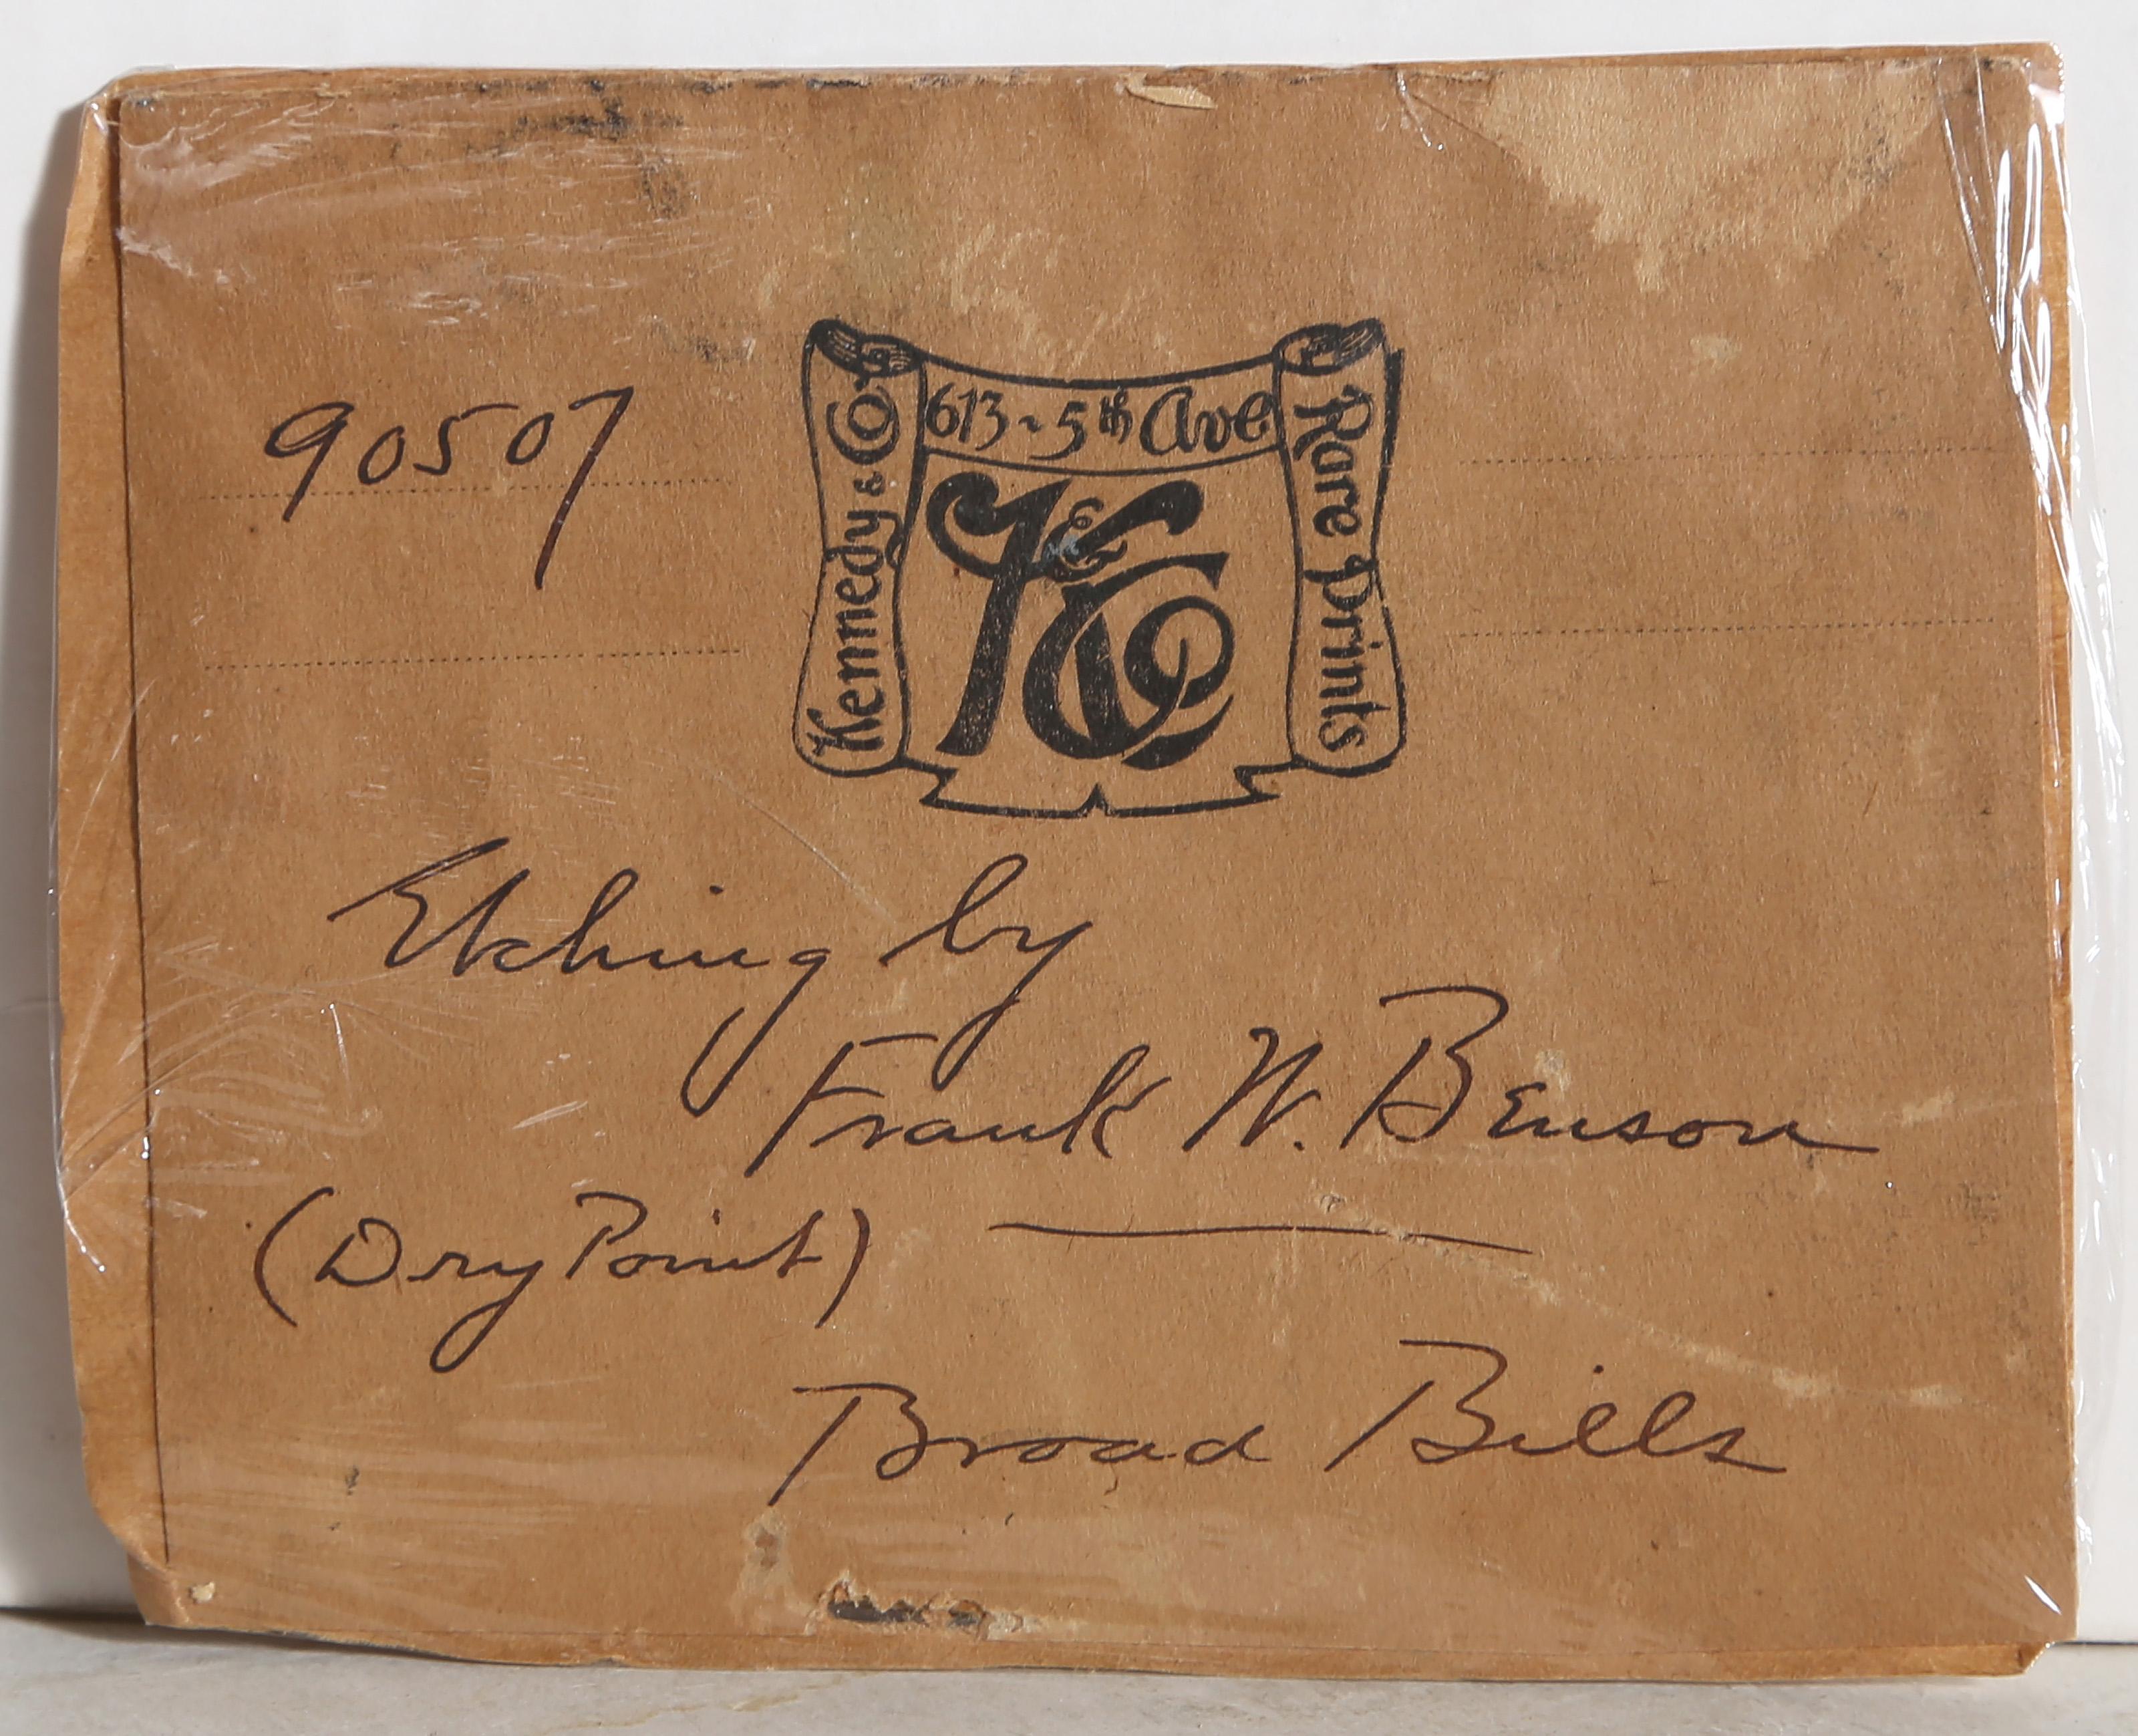 90507
Kennedy & Co
613 - 5th Ave
Rare Prints
K & Co
Etching by
Frank W. Benson
(Dry Point)
Broad Bills